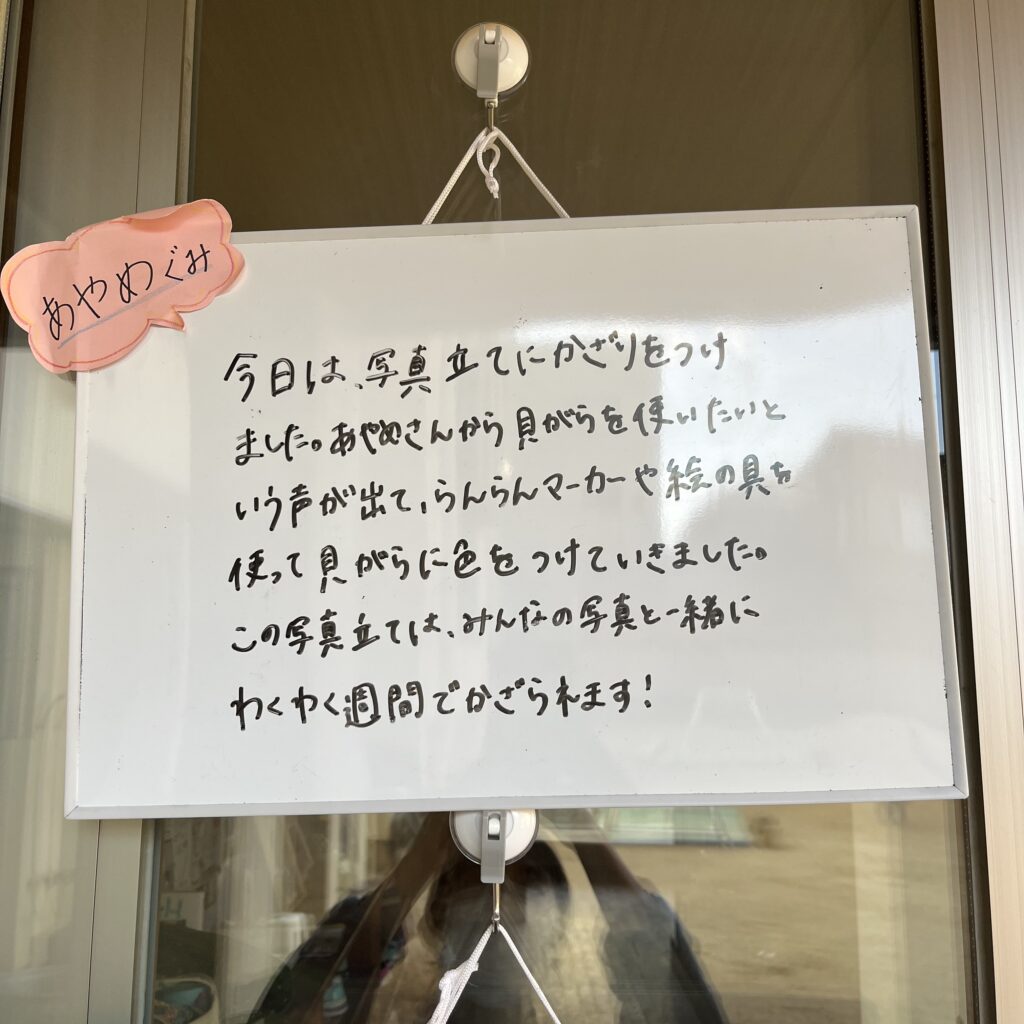 あやめぐみ
今日は、写真立てにかざりをつけ
ました。あやめさんから貝がらを使いたいと
いう声が出て、らんらんマーカーや絵の具を
使って貝がらに色をつけていきました。
この写真立ては、みんなの写真と一緒に
わくわく週間でかざられます！